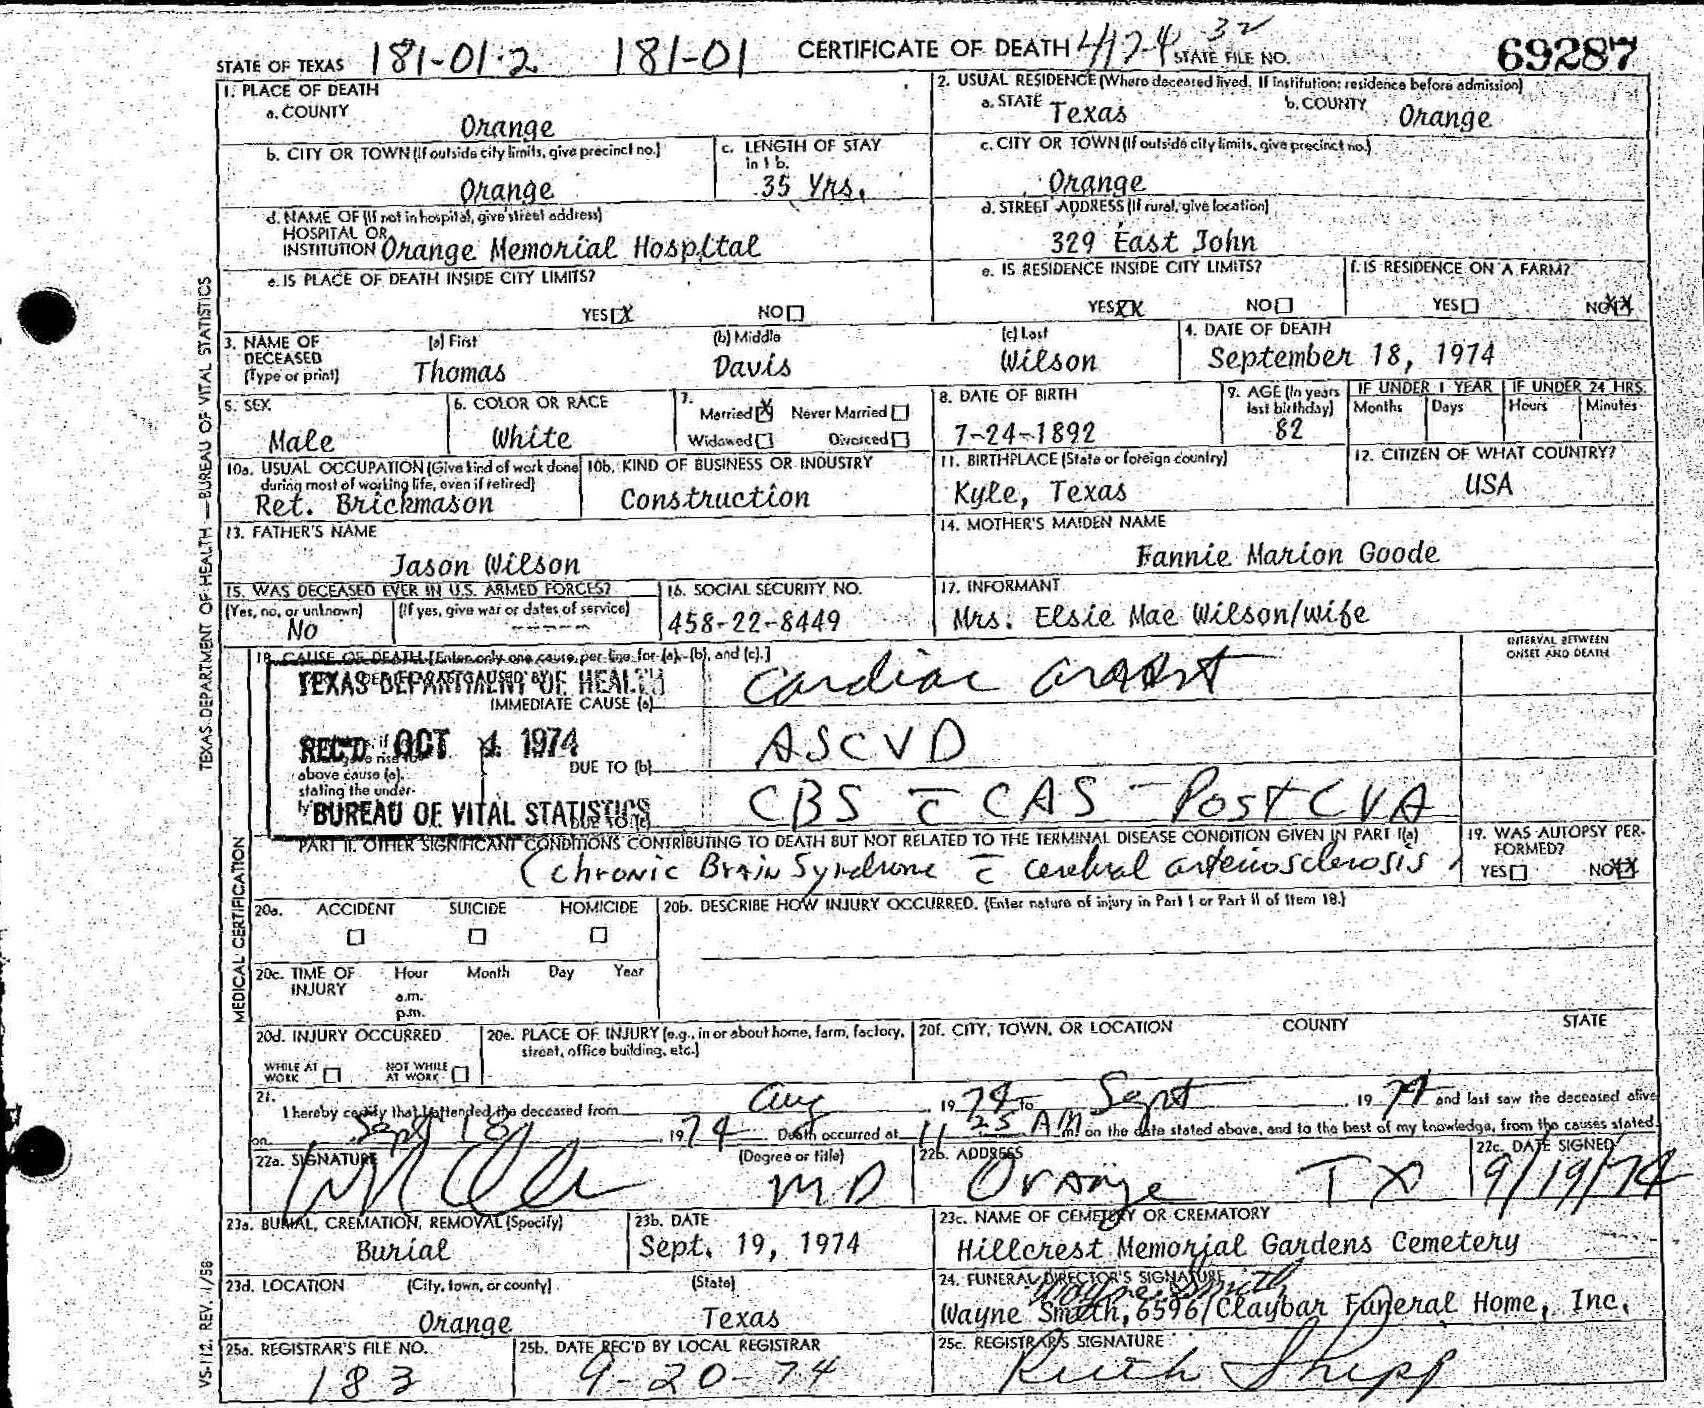 STATE OF TEXAS 181-01-2 181-01 CERTIFICATE OF DEATH 417-4 32 STATE FILE NO. 69287
1. PLACE OF DEATH
a. COUNTY
Orange
2. USUAL RESIDENCE (Where deceased lived. If institution: residence before admission)
a. STATE Texas b. COUNTY Orange
b. CITY OR TOWN (If outside city limits, give precinct no.)
Orange
c. LENGTH OF STAY in 1b.
35 Yrs.
c. CITY OR TOWN (If outside city limits, give precinct no.)
Orange
d. NAME OF (If not in hospital, give street address)
HOSPITAL OR
INSTITUTION Orange Memorial Hospital
d. STREET ADDRESS (If rural, give location)
329 East John
e. IS PLACE OF DEATH INSIDE CITY LIMITS?
YES X NO
e. IS RESIDENCE INSIDE CITY LIMITS?
YES XX NO
f. IS RESIDENCE ON A FARM?
YES NO XX
3. NAME OF DECEASED (Type or print)
(a) First (b) Middle (c) Last
Thomas Davis Wilson
4. DATE OF DEATH
September 18, 1974
5. SEX
Male
6. COLOR OR RACE
White
7. Married X Never Married
Widowed Divorced
8. DATE OF BIRTH
7-24-1892
9. AGE (In years last birthday)
82
IF UNDER 1 YEAR IF UNDER 24 HRS.
Months Days Hours Minutes
10a. USUAL OCCUPATION (Give kind of work done during most of working life, even if retired)
Ret. Brickmason
10b. KIND OF BUSINESS OR INDUSTRY
Construction
11. BIRTHPLACE (State or foreign country)
Kyle, Texas
12. CITIZEN OF WHAT COUNTRY?
USA
13. FATHER'S NAME
Jason Wilson
14. MOTHER'S MAIDEN NAME
Fannie Marion Goode
15. WAS DECEASED EVER IN U.S. ARMED FORCES?
(Yes, no, or unknown) (If yes, give war or dates of service)
No -----
16. SOCIAL SECURITY NO.
458-22-8449
17. INFORMANT
Mrs. Elsie Mae Wilson/wife
18. CAUSE OF DEATH [Enter only one cause per line for (a), (b), and (c).]
INTERVAL BETWEEN ONSET AND DEATH
TEXAS DEPARTMENT OF HEALTH
IMMEDIATE CAUSE (a) Cardiac arrest
REC'D OCT 4 1974
above cause (a), stating the under-
DUE TO (b) ASCVD
BUREAU OF VITAL STATISTICS
CBS c̄ CAS - Post CVA
PART II. OTHER SIGNIFICANT CONDITIONS CONTRIBUTING TO DEATH BUT NOT RELATED TO THE TERMINAL DISEASE CONDITION GIVEN IN PART I(a)
(Chronic Brain Syndrome c̄ cerebral arteriosclerosis)
19. WAS AUTOPSY PERFORMED?
YES NO XX
20a. ACCIDENT SUICIDE HOMICIDE
20b. DESCRIBE HOW INJURY OCCURRED. (Enter nature of injury in Part I or Part II of Item 18.)
20c. TIME OF INJURY Hour Month Day Year
a.m.
p.m.
20d. INJURY OCCURRED
WHILE AT WORK NOT WHILE AT WORK
20e. PLACE OF INJURY (e.g., in or about home, farm, factory, street, office building, etc.)
20f. CITY, TOWN, OR LOCATION COUNTY STATE
21. I hereby certify that I attended the deceased from Aug, 1974 to Sept, 1974 and last saw the deceased alive
on Sept 18, 1974. Death occurred at 11 25 AM m. on the date stated above, and to the best of my knowledge, from the causes stated.
22a. SIGNATURE (Degree or title)
MD
22b. ADDRESS
Orange TX
22c. DATE SIGNED
9/19/74
23a. BURIAL, CREMATION, REMOVAL (Specify)
Burial
23b. DATE
Sept. 19, 1974
23c. NAME OF CEMETERY OR CREMATORY
Hillcrest Memorial Gardens Cemetery
23d. LOCATION (City, town, or county) (State)
Orange Texas
24. FUNERAL DIRECTOR'S SIGNATURE
Wayne Smith
Wayne Smith, 6596/Claybar Funeral Home, Inc.
25a. REGISTRAR'S FILE NO.
183
25b. DATE REC'D BY LOCAL REGISTRAR
9-20-74
25c. REGISTRAR'S SIGNATURE
Ruth Shipp
TEXAS DEPARTMENT OF HEALTH — BUREAU OF VITAL STATISTICS
MEDICAL CERTIFICATION
VS-112 REV. 1/58